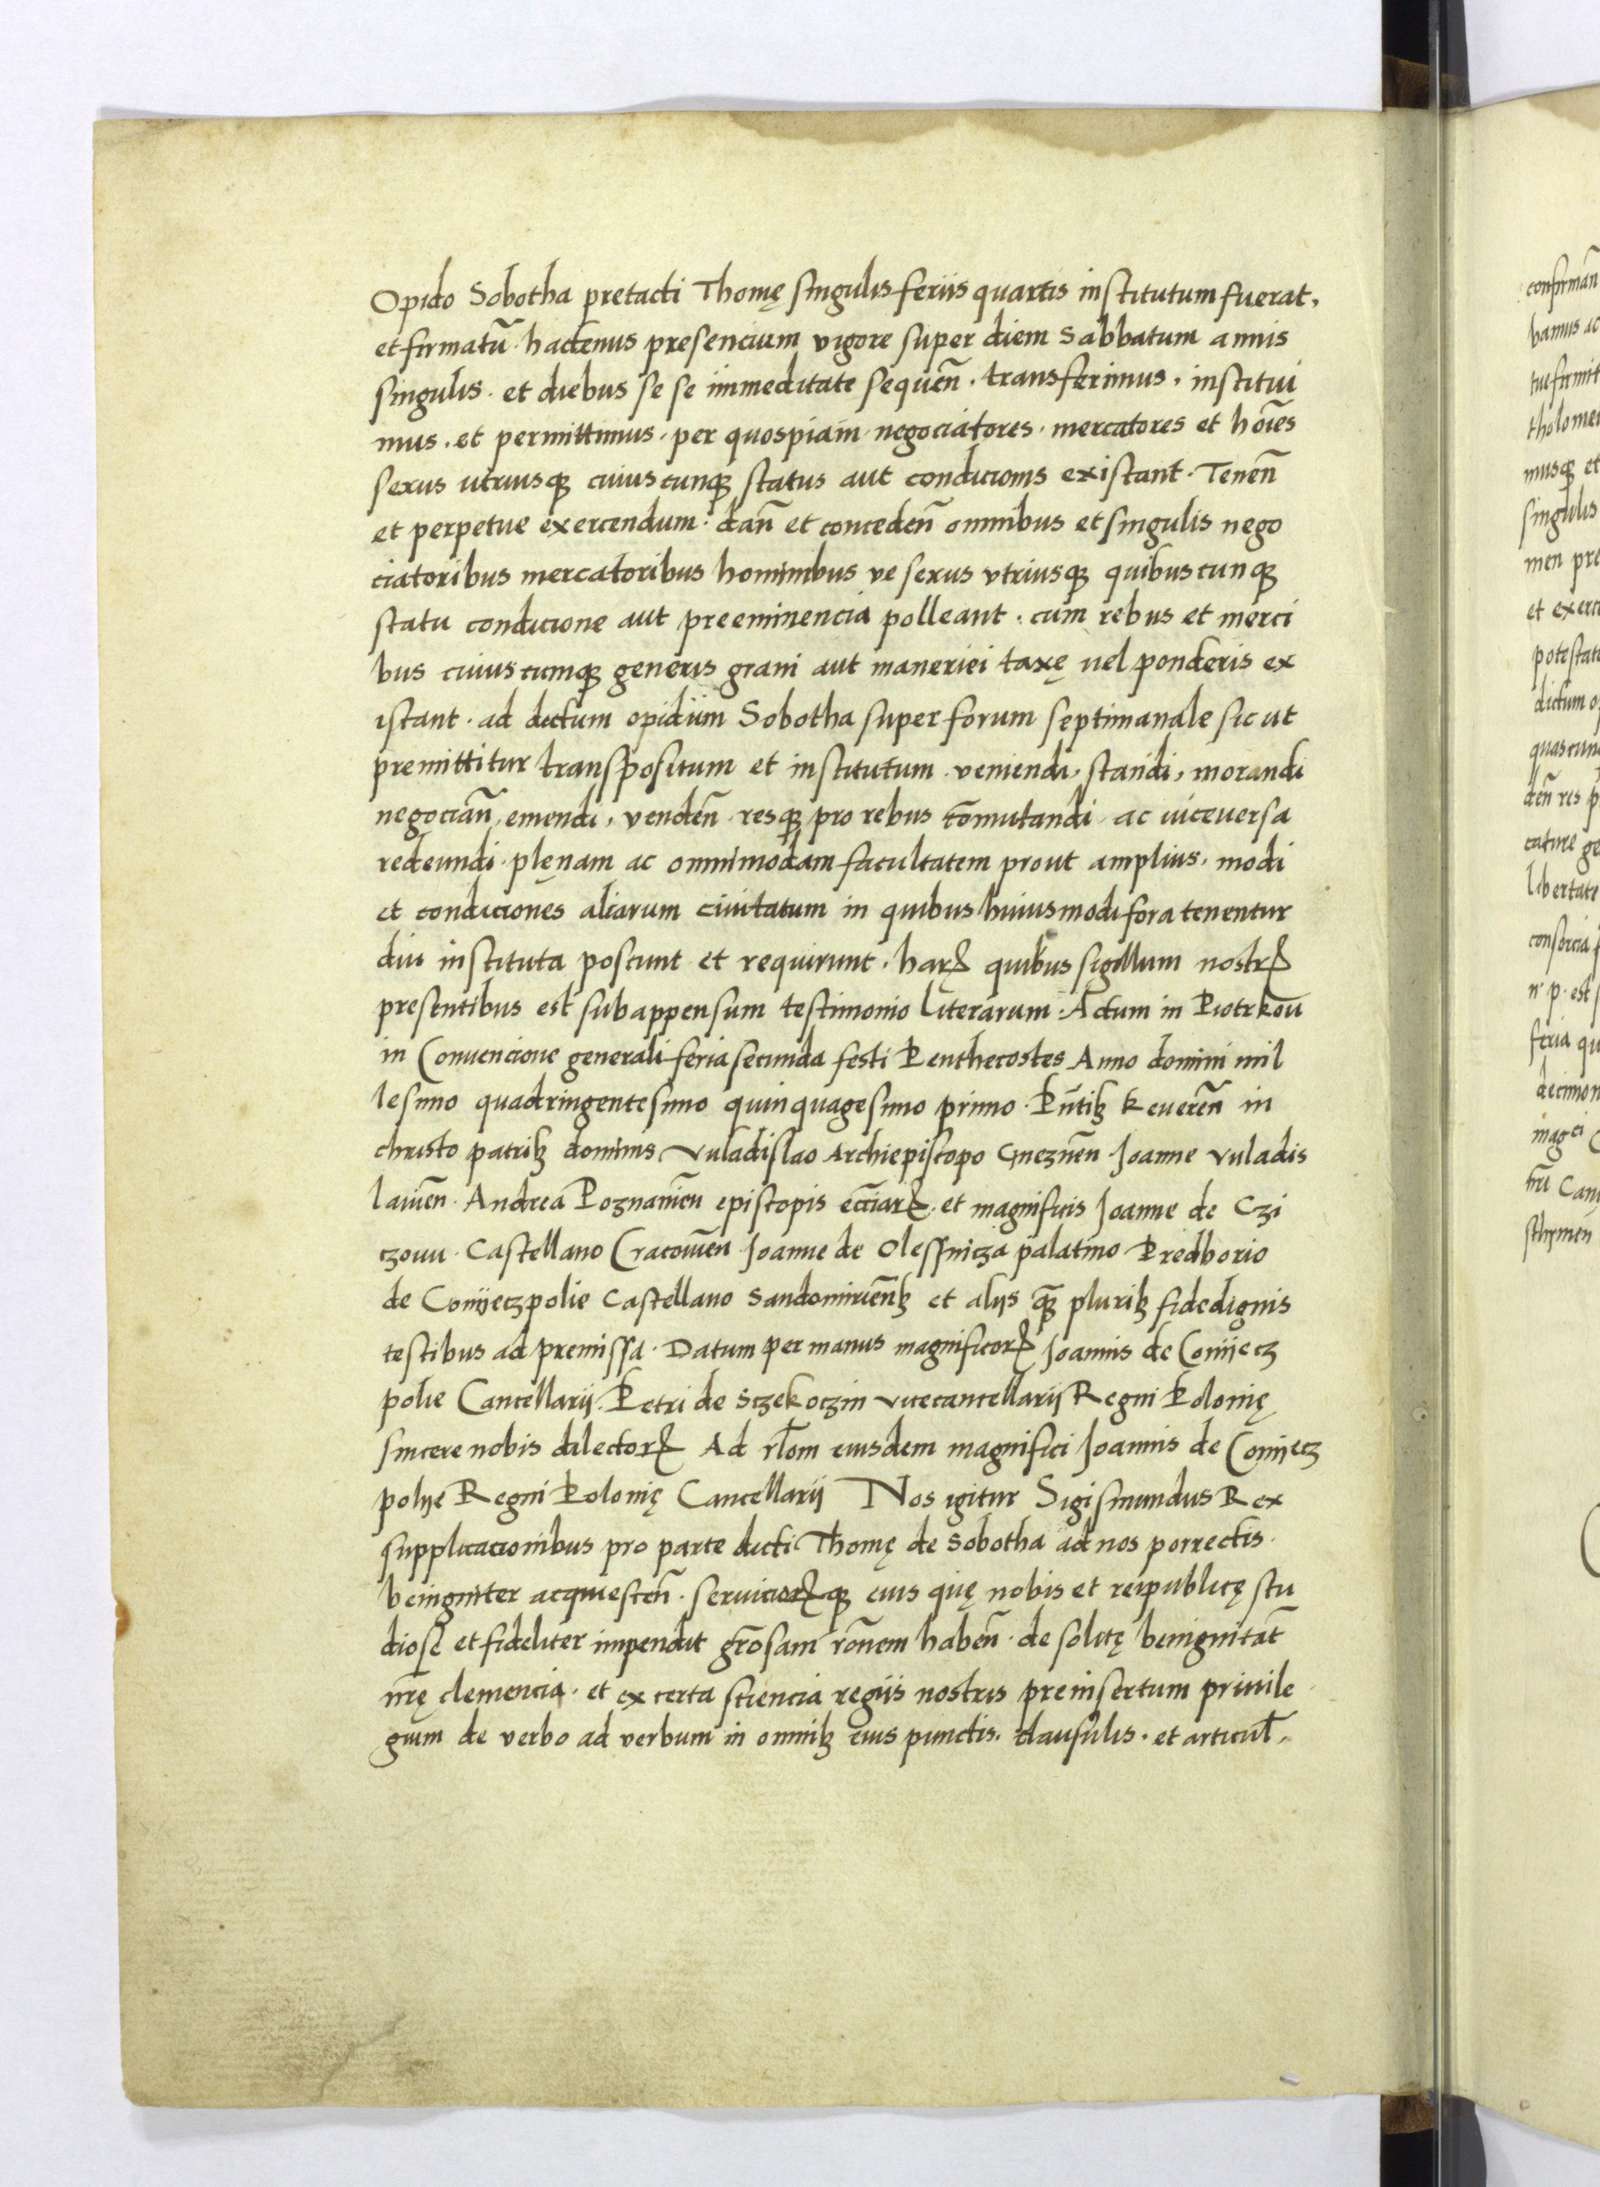 Opido Sobotha pretacti Thomę singulis feriis quartis institutum fuerat,
et firmatū hactenus presencium vigore super diem Sabbatum annis
singulis · et diebus se se immeditate sequen̄ · transferimus · institui
mus · et permittimus · per quospiam negociatores · mercatores et hoīes
sexus utriusqꝫ cuiuscunqꝫ status aut condicionis existant · Tenen̄
et perpetue exercendum · dan̄ et conceden̄ omnibus et singulis nego
ciatoribus mercatoribus hominibus ve sexus vtriusqꝫ quibuscunqꝫ
statu condicione aut preeminencia polleant · cum rebus et merci
bus cuiuscumqꝫ generis grani aut maneriei taxę vel ponderis ex
istant · ad dictum opidum Sobotha super forum septimanale sic ut
premittitur transpositum et institutum · veniendi, standi, morandi
negocian̄, emendi, venden̄ · resqꝫ pro rebus com̄utandi · ac viceversa
redeundi · plęnam ac omnimodam facultatem prout amplius, modi
et condiciones aliarum ciuitatum in quibus huiusmodi fora tenentur
diu instituta poscunt et requirunt · harꝝ quibus sigillum nostrꝝ
presentibus est subappensum testimonio literarum · Actum in Piotrkou
in Conuencione generali feria secunda festi Penthecostes Anno domini mil
lesimo quadringentesimo quinquagesimo primo · Pn̄tibꝫ Reueren̄ in
christo patribꝫ dominis Vuladislao Archiepiscopo Gneznen̄ Joanne Vuladis
lauien̄ · Andrea Poznanien̄ episcopis ecc̄iarꝝ · et magnificis Joanne de Czi
czouu · Castellano Cracouien̄ Joanne de Olessnicza palatino Predborio
de Coniieczpolie Castellano Sandomirien̄bꝫ et aliis qꝫ pluribꝫ fidedignis
testibus ad premissa · Datum per manus magnificorꝝ Joannis de Coniiecz
polie Cancellarii · Petri de Sczekoczin Vicecancellarii Regni Polonię
sincere nobis dilectorꝝ Ad rl̄om eiusdem magnifici Joannis de Coniiecz
poliie Regni Polonię Cancellarii Nos igitur Sigismundus Rex
supplicacionibus pro parte dicti Thomę de Sobotha ad nos porrectis ·
beingniter acquiescen̄ · seruiciorꝝqꝫ eius quę nobis et reipublicę stu
diose et fideliter impendit gr̄osam rōnem haben̄ · de solitę benignitat̄
nr̄ę clemencia · et ex certa sciencia regiis nostris preinsertum priuile
gium de verbo ad verbum in omnibꝫ eius punctis, clausulis · et articul̄,